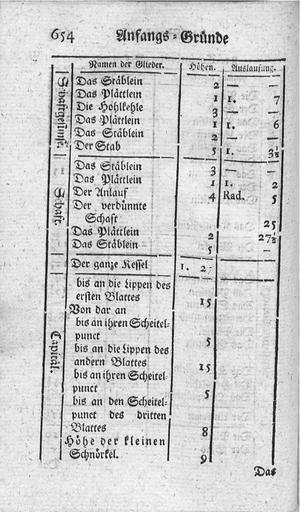 654 Anfangs-Gründe
Namen der Glieder. Höhen. Ausladung.
Das Stäblein 2 — —
Das Plättlein 1 1. 7
Die Hohlkehle 3 — —
Das Plättlein 1 1. 6
Das Stäblein 2 — —
Der Stab 5 1. 3½
Schaft.
Das Stäblein 3 — —
Das Plättlein 1 1. 2
Der Anlauf 4 Rad. 5
Der verdünnte
Schaft 25
Das Plättlein 2 27½
Das Stäblein 5 —
Der ganze Kessel 1. 27
Capitäl.
bis an die Lippen des
ersten Blattes 15
Von dar an
bis an ihren Scheitel-
punct 5
bis an die Lippen des
andern Blattes 15
bis an ihren Scheitel-
punct 5
bis an den Scheitel-
punct des dritten
Blattes 8
Höhe der kleinen
Schnörkel. 9
Das